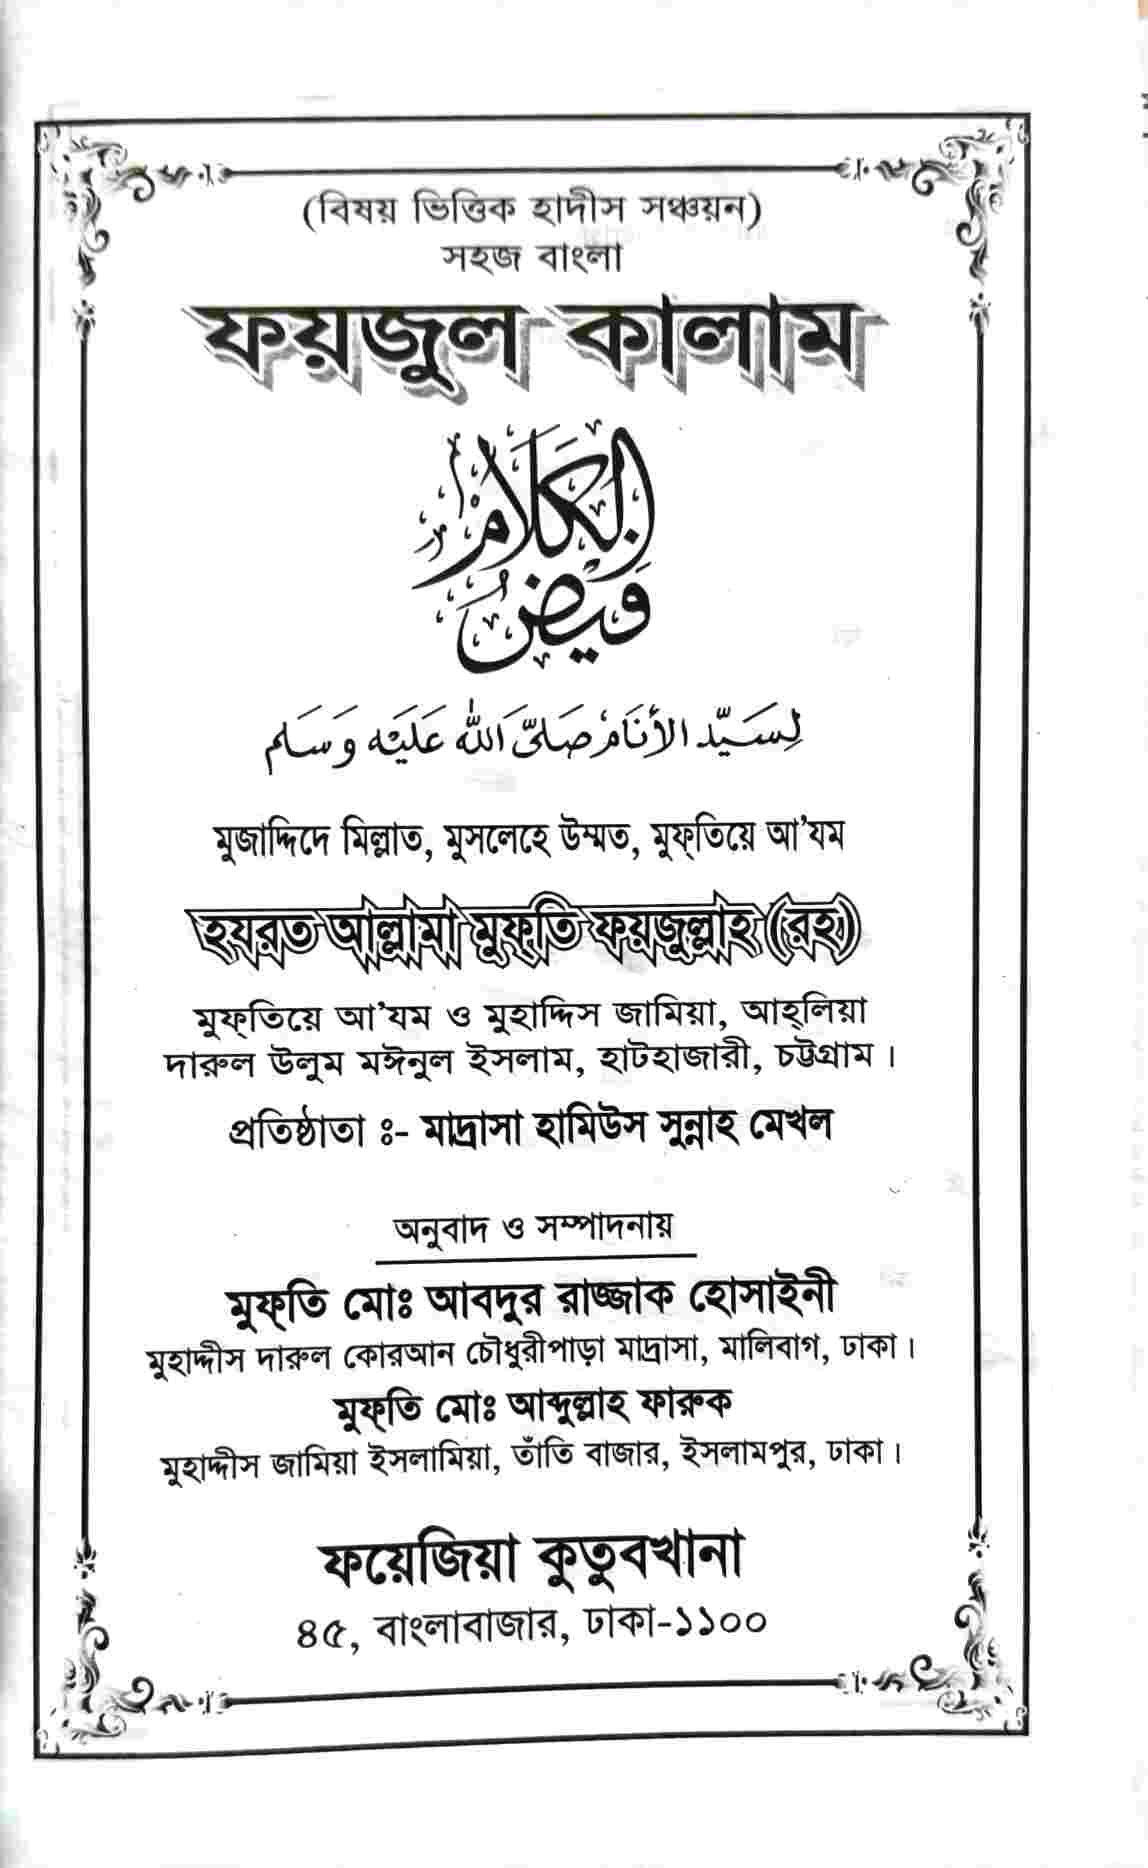 (বিষয় ভিত্তিক হাদীস সঞ্চয়ন)
সহজ বাংলা
ফয়জুল কালাম
فَيْضُ الْكَلَامِ
لِسَيِّدِ الْأَنَامِ صَلَّى اللّٰهُ عَلَيْهِ وَسَلَّمَ
মুজাদ্দিদে মিল্লাত, মুসলেহে উম্মত, মুফ্‌তিয়ে আ'যম
হযরত আল্লামা মুফ্‌তি ফয়জুল্লাহ (রহঃ)
মুফ্‌তিয়ে আ'যম ও মুহাদ্দিস জামিয়া, আহ্‌লিয়া
দারুল উলুম মঈনুল ইসলাম, হাটহাজারী, চট্টগ্রাম।
প্রতিষ্ঠাতা ঃ- মাদ্রাসা হামিউস সুন্নাহ মেখল
অনুবাদ ও সম্পাদনায়
মুফ্‌তি মোঃ আবদুর রাজ্জাক হোসাইনী
মুহাদ্দীস দারুল কোরআন চৌধুরীপাড়া মাদ্রাসা, মালিবাগ, ঢাকা।
মুফ্‌তি মোঃ আব্দুল্লাহ ফারুক
মুহাদ্দীস জামিয়া ইসলামিয়া, তাঁতি বাজার, ইসলামপুর, ঢাকা।
ফয়েজিয়া কুতুবখানা
৪৫, বাংলাবাজার, ঢাকা-১১০০